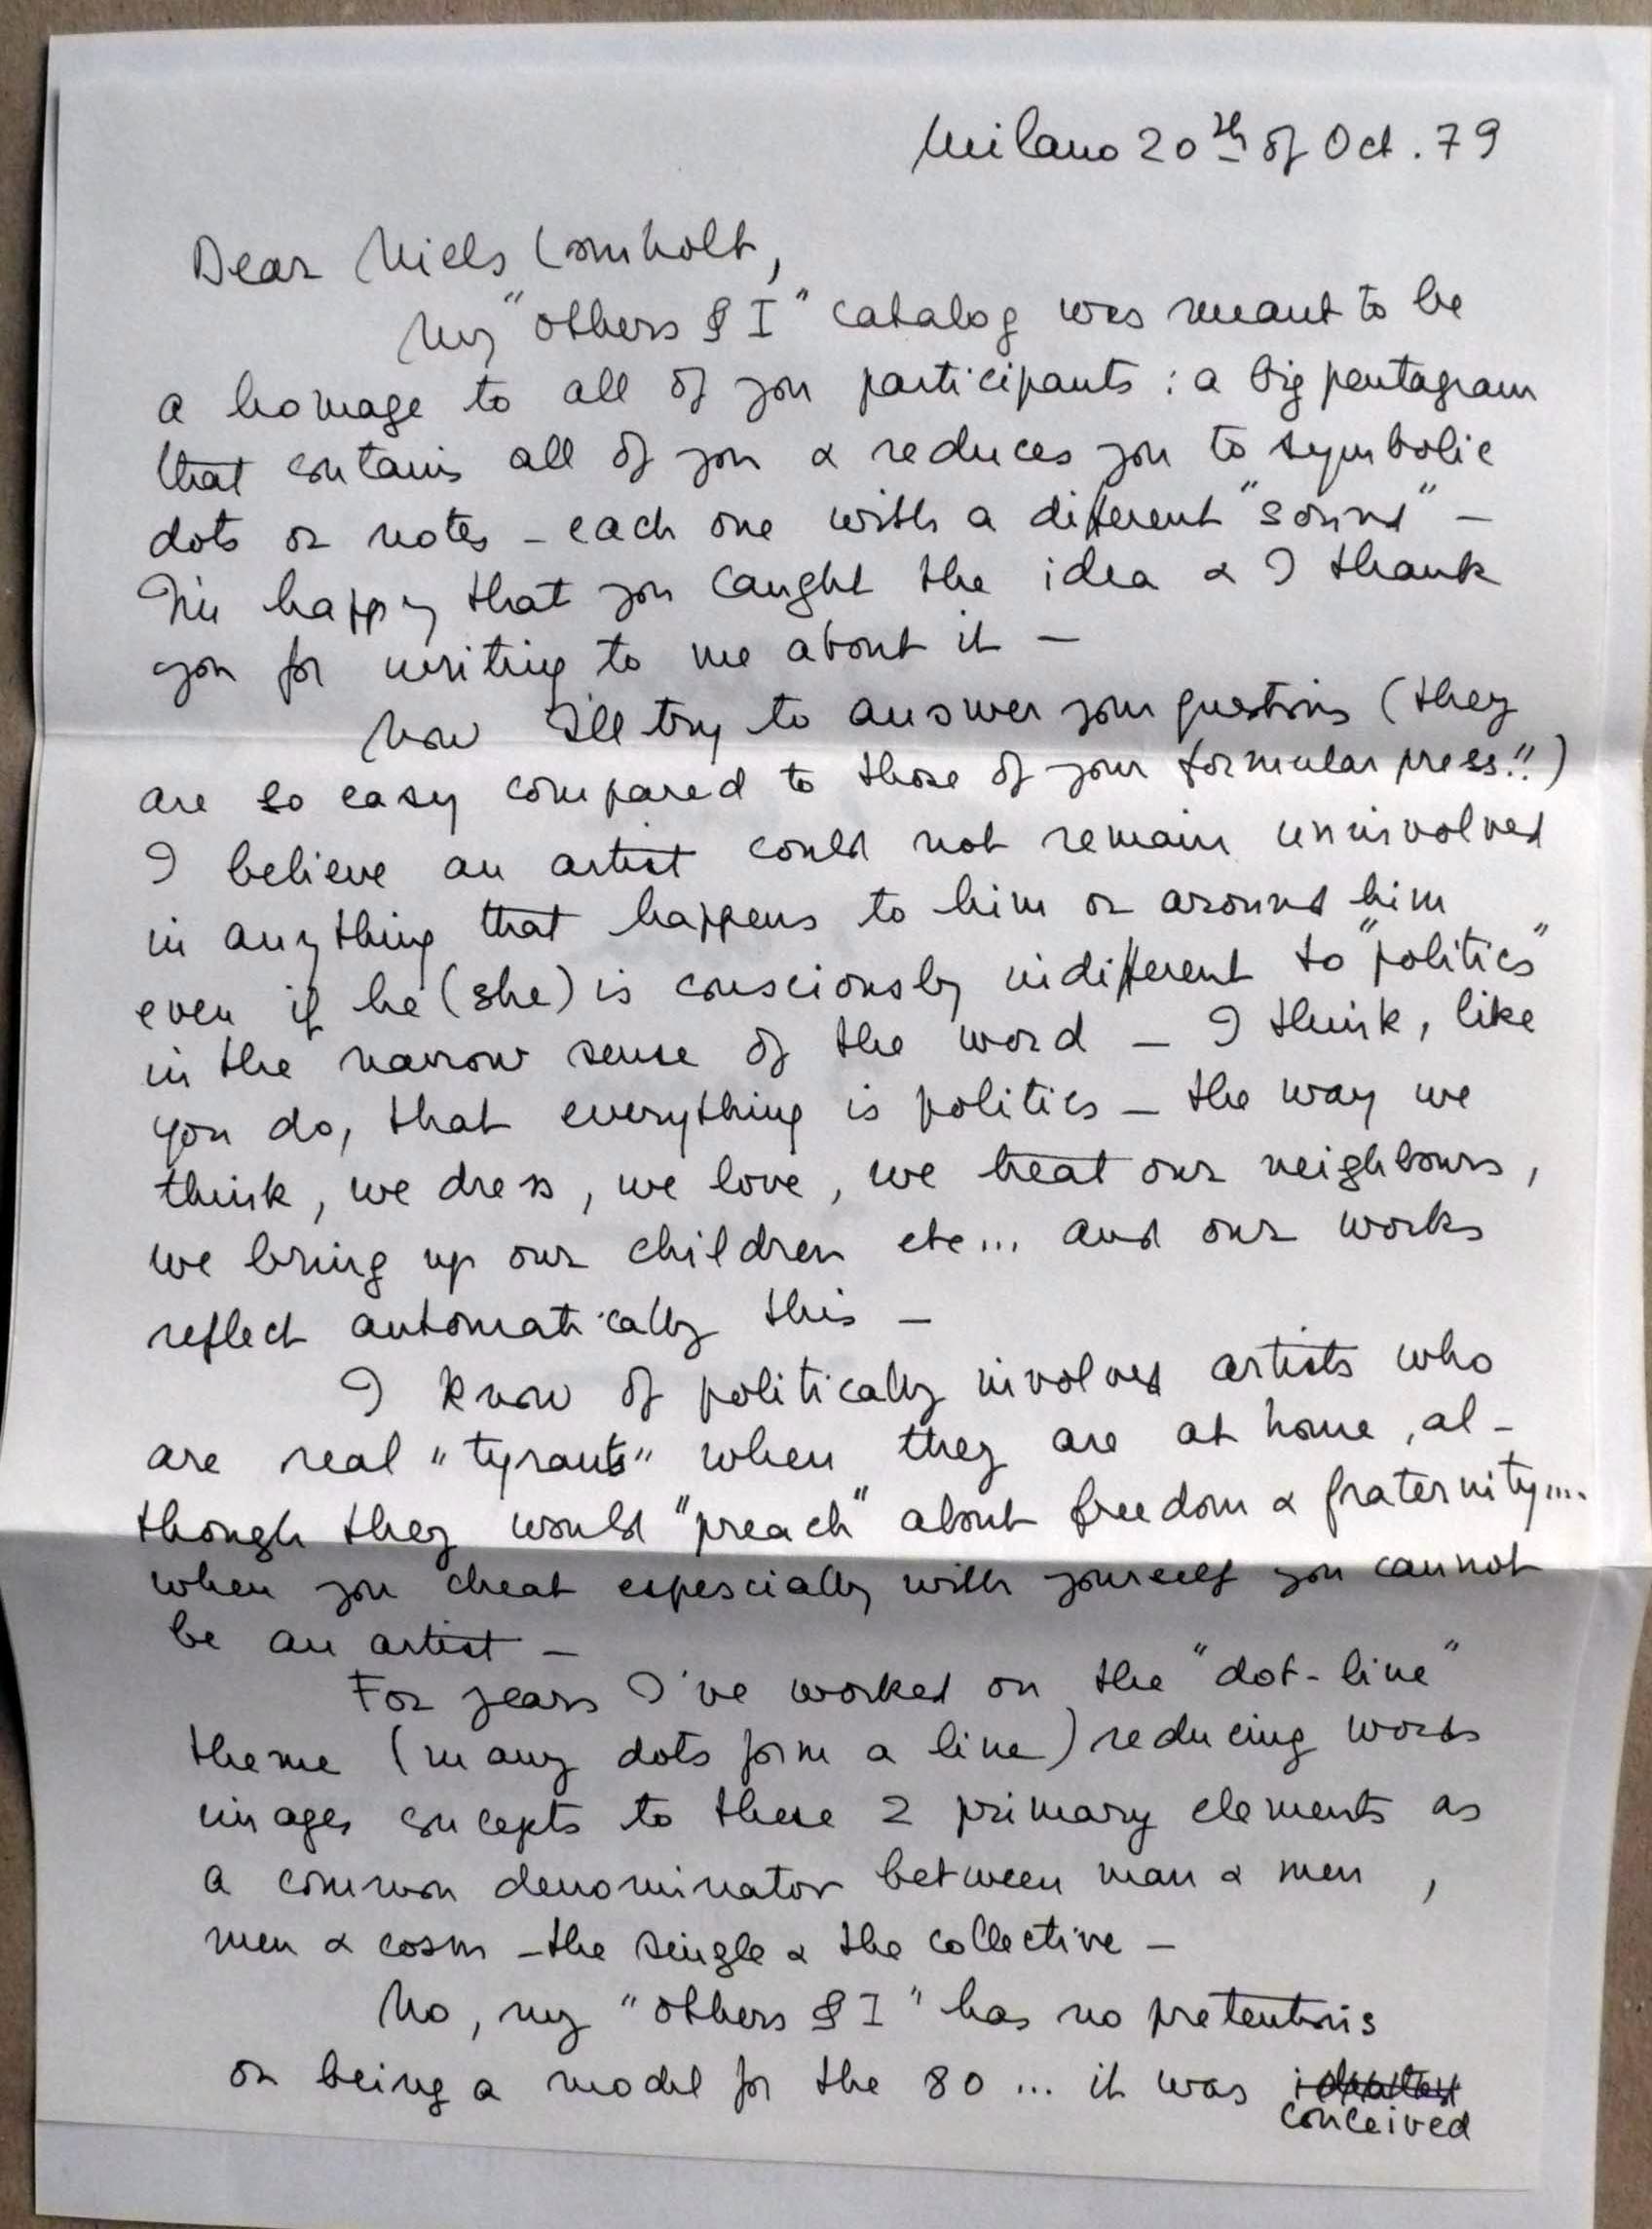 Milano 20th of Oct. 79
Dear Niels Lomholt,
My "Others & I" catalog was meant to be
a homage to all of you participants : a big pentagram
that contains all of you & reduces you to symbolic
dots or notes - each one with a different "sound" -
I'm happy that you caught the idea & I thank
you for writing to me about it -
Now I'll try to answer your questions (they
are so easy compared to those of your formular press!!)
I believe an artist could not remain uninvolved
in anything that happens to him or around him
even if he (she) is consciously indifferent to "politics"
in the narrow sense of the word - I think, like
you do, that everything is politics - the way we
think, we dress, we love, we treat our neighbours,
we bring up our children etc... and our works
reflect automatically this -
I know of politically involved artists who
are real "tyrants" when they are at home, al-
though they would "preach" about freedom & fraternity....
when you cheat espescially with yourself you cannot
be an artist -
For years I've worked on the "dot-line"
theme (many dots form a line) reducing words
images concepts to these 2 primary elements as
a common denominator between man & men ,
men & cosm - the single & the collective -
No, my "Others & I" has no pretentions
on being a model for the 80 ... it was
conceived